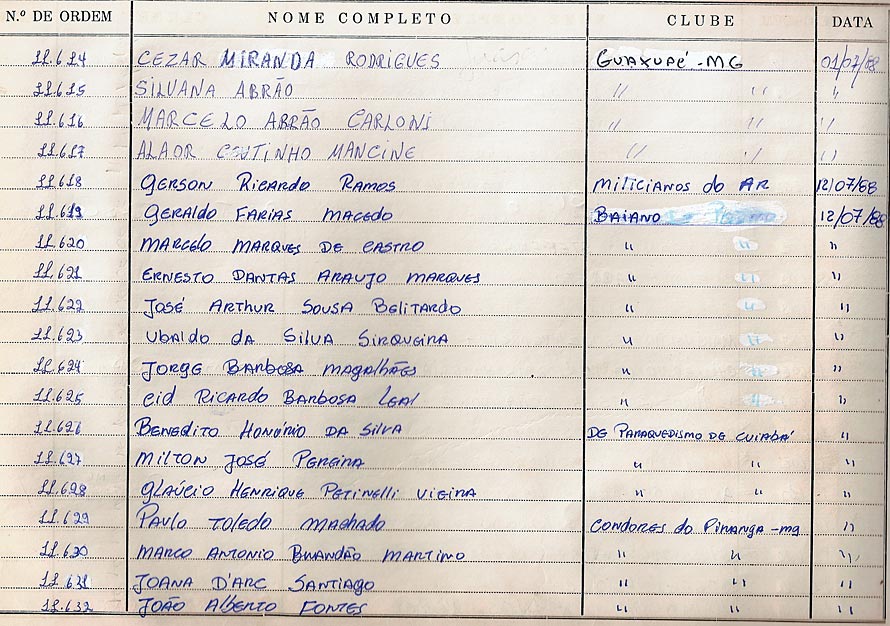 N.º DE ORDEM NOME COMPLETO CLUBE DATA
11.614 CEZAR MIRANDA RODRIGUES GUAXUPÉ-MG 01/07/88
11.615 SILVANA ABRÃO " " "
11.616 MARCELO ABRÃO CARLONI " " "
11.617 ALAOR COUTINHO MANCINE " " "
11.618 GERSON RICARDO RAMOS MILICIANOS do AR 12/07/88
11.619 GERALDO FARIAS MACEDO BAIANO 12/07/88
11.620 MARCELO MARQUES DE CASTRO " " "
11.621 ERNESTO DANTAS ARAUJO MARQUES " " "
11.622 JOSÉ ARTHUR SOUSA BELITARDO " " "
11.623 UBALDO DA SILVA SIRQUEIRA " " "
11.624 JORGE BARBOSA MAGALHÃES " " "
11.625 CID RICARDO BARBOSA LEAL " " "
11.626 BENEDITO HONÓRIO DA SILVA DE PARAQUEDISMO DE CUIABÁ "
11.627 MILTON JOSÉ PEREIRA " " "
11.628 GLAÚCIO HENRIQUE PETINELLI VIEIRA " " "
11.629 PAULO TOLEDO MACHADO CONDORES do PIRANGA-MG "
11.630 MARCO ANTONIO BRANDÃO MARTINO " " "
11.631 JOANA D'ARC SANTIAGO " " "
11.632 JOÃO ALBERTO FONTES " " "